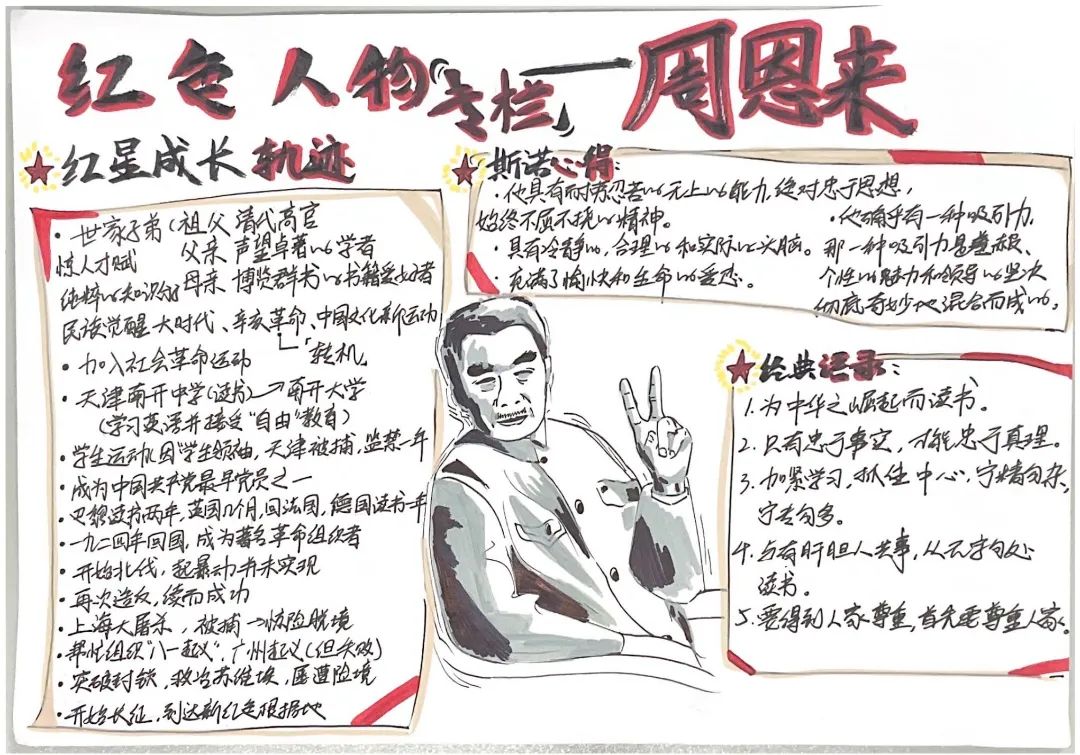 红色人物「专栏」——周恩来
红星成长轨迹
·世家子弟(祖父 清代高官
父亲 声望卓著的学者
惊人才赋
纯粹的知识分子 母亲 博览群书的书籍爱好者
民族觉醒大时代、辛亥革命、中国文化新运动
「转机」
·加入社会革命运动
·天津南开中学(读书)→南开大学
(学习英语并接受“自由”教育)
·学生运动(因“学生领袖,天津被捕,监禁一年
·成为中国共产党最早党员之一
·巴黎读书两年,英国几个月,回法国,德国读书一年
·一九二四年回国,成为著名革命组织者
·开始北伐,起暴动 而未实现
·再次造反,续而成功
·上海大屠杀,被捕→惊险脱境
·帮忙组织“八一起义”,广州起义(但失败)
·突破封锁,政治苏维埃,屡遭险境
·开始长征,到达新红色根据地
斯诺心得:
·他具有耐劳忍苦的无上的能力,绝对忠于思想,
始终不屈不挠的精神。
·具有冷静的,合理的和实际的头脑。
·充满了愉快和生命的爱恋。
·他确乎有一种吸引力,
那一种吸引力是羞怯,
个性的魅力和领导的坚决
彻底奇妙地混合而成的。
经典语录:
1.为中华之崛起而读书。
2.只有忠于事实,才能忠于真理。
3.加紧学习,抓住中心,宁精勿杂,
宁专勿多。
4.与有肝胆人共事,从无字句处
读书。
5.要得到人家尊重,首先要尊重人家。